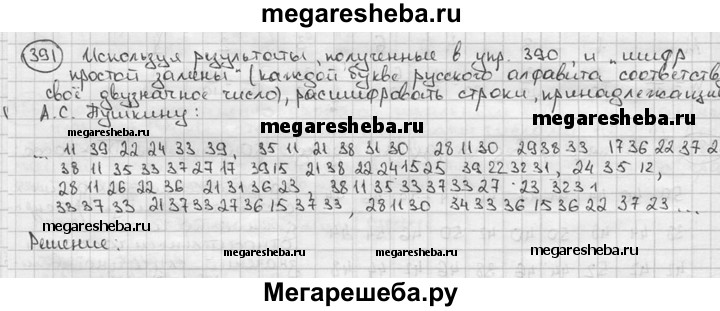 megaresheba.ru
391 Используя результаты, полученные в упр. 390, и „шифр
простой замены" (каждой букве русского алфавита соответств
своё двузначное число), расшифровать строки, принадлежащи
А.С. Пушкину:
megaresheba.ru
megaresheba.ru
megaresheba.ru
... 11 39 22 24 33 39, 35 11 21 38 31 30 28 11 30 29 38 33 17 36 22 37 2
38 11 35 33 37 27 17 39 15 21 38 22 24 15 25 39 22 32 31, 24 35 12,
28 11 26 22 36 21 31 36 23, 38 11 35 33 37 33 27 23 32 31
33 37 33 21 37 33 27 36 15 37 33, 28 11 30 34 33 36 15 36 22 37 23 ...
megaresheba.ru
megaresheba.ru
Решение:
megaresheba.ru
Мегарешеба.ру